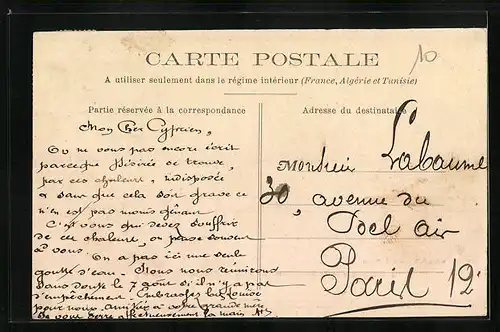 10
CARTE POSTALE
A utiliser seulement dans le régime intérieur (France, Algérie et Tunisie)
Partie réservée à la correspondance
Adresse du destinataire
Mon Cher Cyprien,
On ne vous pas encore écrit
parceque Désirée se trouve,
par ces chaleurs, indisposée
sans que cela soit grave ce
n'en est pas moins gênant
C'est vous qui devez souffrir
de ces chaleurs, on pense souvent
à vous
On a pas ici une seule
goutte d'eau. Nous nous réunirons
sans doute le 7 août si il n'y a pas
d'empêchement. Embrassez
pour nous, amitiés à votre grand mère
on vous serre affectueusement la main
Monsieur Labaume
30, avenue du
Bel air
Paris 12e